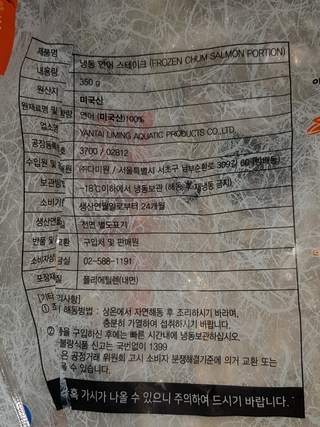 제품명 냉동 연어 스테이크 (FROZEN CHUM SALMON PORTION)
내용량 350 g
원산지 미국산
원재료명 및 함량 연어 (미국산)100%
업소명 YANTAI LIMING AQUATIC PRODUCTS CO.,LTD
공장등록번호 3700 / 02812
수입원 및 ㈜다미원 / 서울특별시 서초구 남부순환로 309길 60
보관방법 -18℃이하에서 냉동보관 (해동 후 재냉동 금지)
소비기한 생산연월일로부터 24개월
생산연월일 전면 별도표기
반품 및 교환 구입처 및 판매원
소비자상담실 02-588-1191
포장재질 폴리에틸렌(내면)
[기타 표시사항]
① 해동방법 : 상온에서 자연해동 후 조리하시기 바라며,
충분히 가열하여 섭취하시기 바랍니다.
② 제품을 구입하신 후에는 빠른 시간내에 냉동보관하십시오.
불량식품 신고는 국번없이 1399
은 공정거래 위원회 고시 소비자 분쟁해결기준에 의거 교환 또는
을 수 있습니다.
혹 가시가 나올 수 있으니 주의하여 드시기 바랍니다.